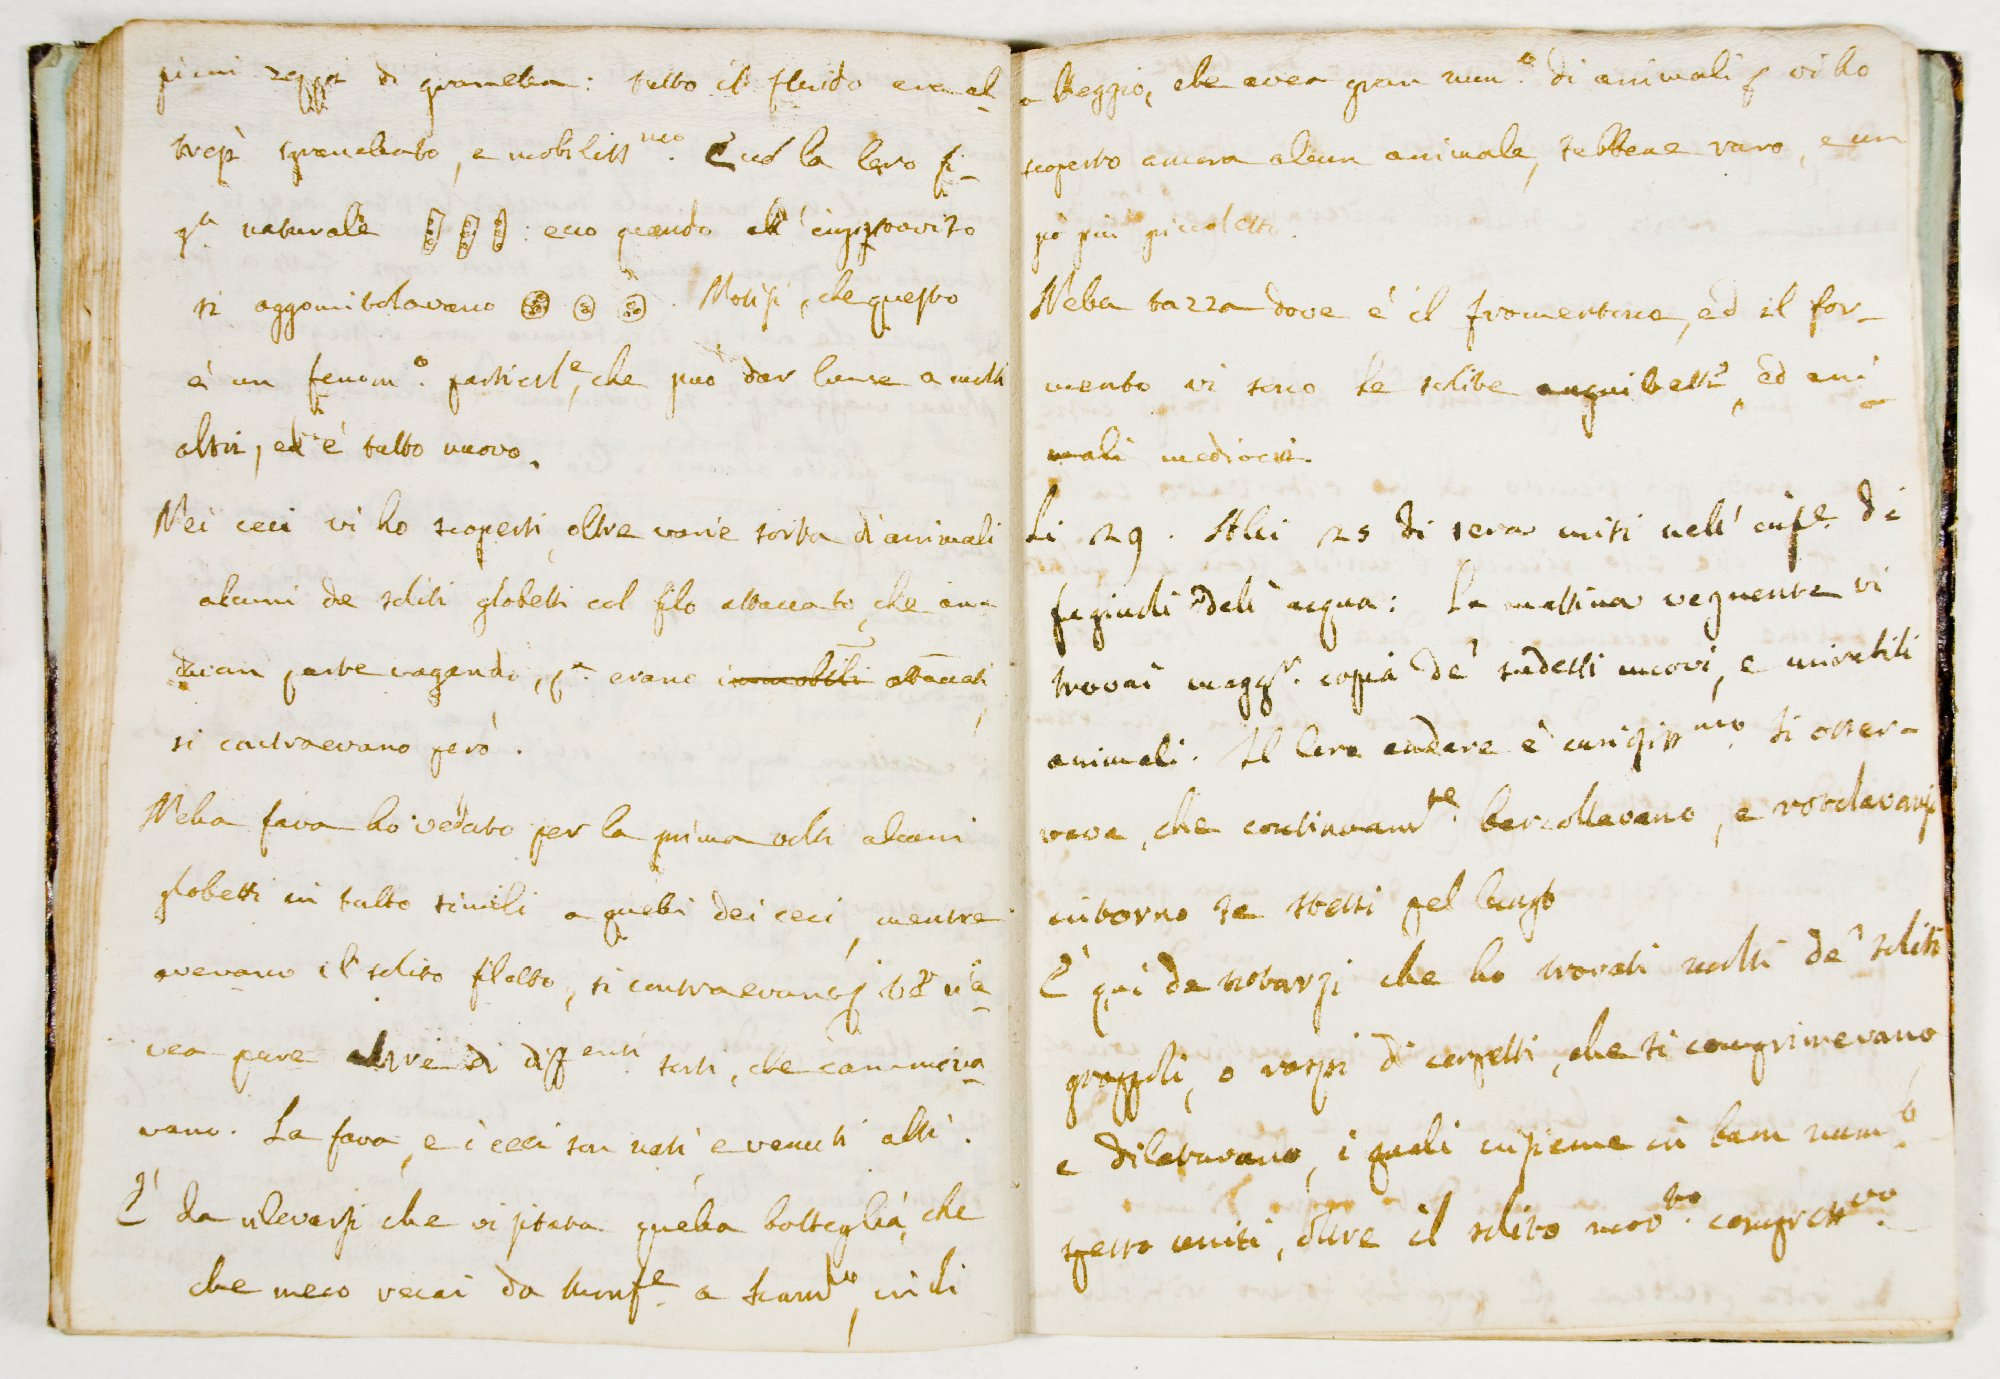 pieni zeppi di granella: tutto il fluido era al-
tresì granellato, e mobiliss.mo. Ecco la loro fi-
g.a naturale : ecco quando all'improvviso
si aggomitolavano . Notisi, che questo
è un fenom.o particol.e, che può dar lume a molti
altri, ed è tutto nuovo.
Nei ceci vi ho scoperti, oltre varie sorta di animali
alcuni de soliti globetti col filo attaccato, che an-
davan parte vagando, erano immobili attaccati,
si contraevano però.
Nella fava ho veduto per la prima volta alcuni
globetti in tutto simili a quelli dei ceci, mentre
avevano il solito filetto, si contraevano
vea pure di diff.enti sorti, che camina-
vano. La fava, e i ceci son nati, e venuti alti.
È da rilevarsi che vi stava quella bottiglia, che
che meco recai da a Scand.o, indi
a Reggio, che avea gran num.o di animali, vi ho
scoperto ancora alcun animale, sebbene raro, e un
pò più piccoletto.
Nella tazza dove è il fromentone, ed il for-
mento vi sono le solite anguillette, ed ani-
mali mediocri.
Li 29. Alli 25 di sera misi nell'inf.e di
fagiuoli dell'acqua: La mattina vegnente vi
trovai magg.r copia de' sudetti nuovi, e mirabili
animali. Il loro andare è curiosiss.mo. Si osser-
vava, che continuam.te barcollavano, e rotolavansi
intorno se stessi pel lungo
È quì da notarsi che ho trovati molti de' soliti
grappoli, o raspi di corpetti, che si comprimevano,
e dilatavano, i quali insieme in buon num.o
spesso uniti, oltre il solito mov.to compress.vo.